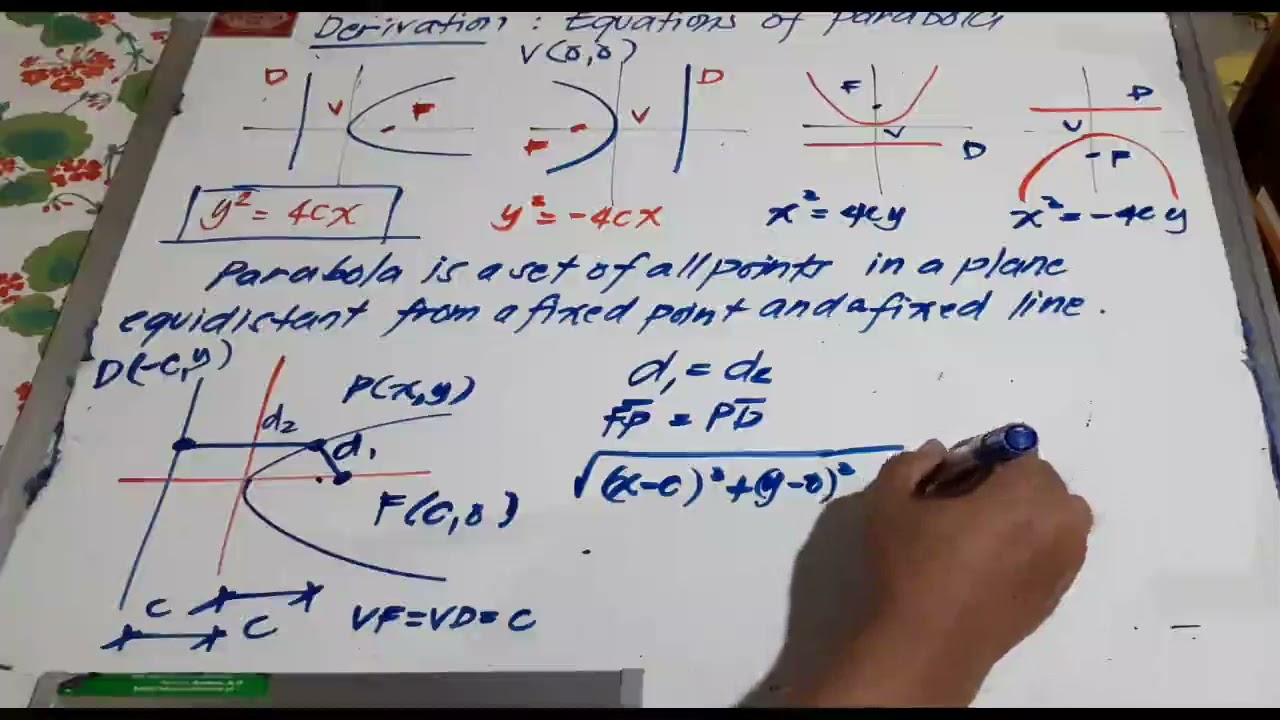 Derivation : Equations of parabola
V(0,0)
D V F
F V D
F V D
D V F
y² = 4cx
y² = -4cx
x² = 4cy
x² = -4cy
Parabola is a set of all points in a plane
equidistant from a fixed point and a fixed line.
D(-c,y)
P(x,y)
d₂
d₁
F(c,0)
C
C
VF=VD=C
d₁ = d₂
F̅P̅ = P̅D̅
√(x-c)²+(y-0)²